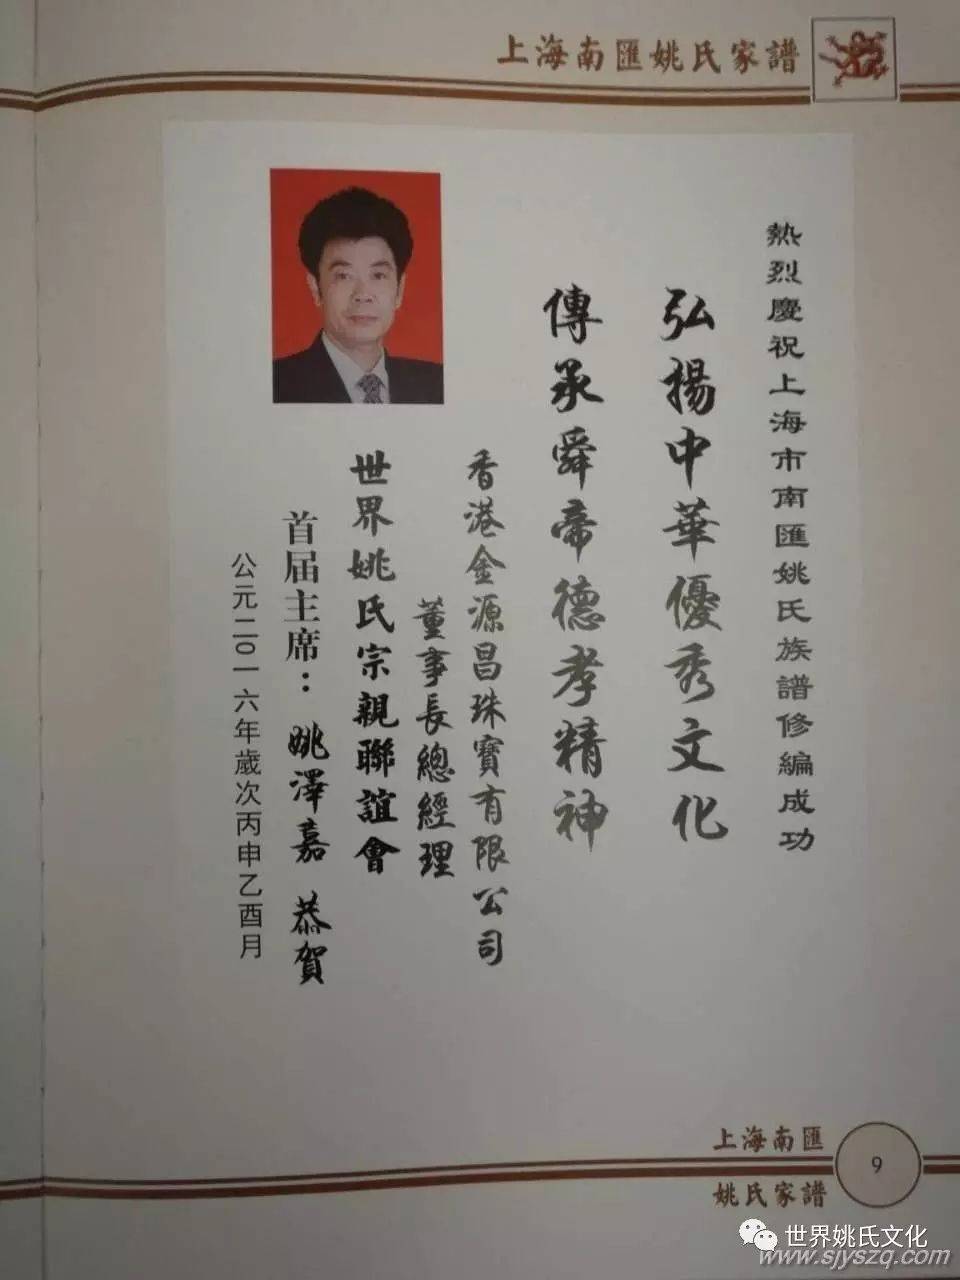 上海南匯姚氏家譜
熱烈慶祝上海市南匯姚氏族譜修編成功
弘揚中華優秀文化
傳承舜帝德孝精神
香港金源昌珠寶有限公司
董事長總經理
世界姚氏宗親聯誼會
首届主席：姚澤嘉 恭賀
公元二〇一六年歲次丙申乙酉月
上海南匯
9
姚氏家譜
世界姚氏文化
www.sjyszq.com